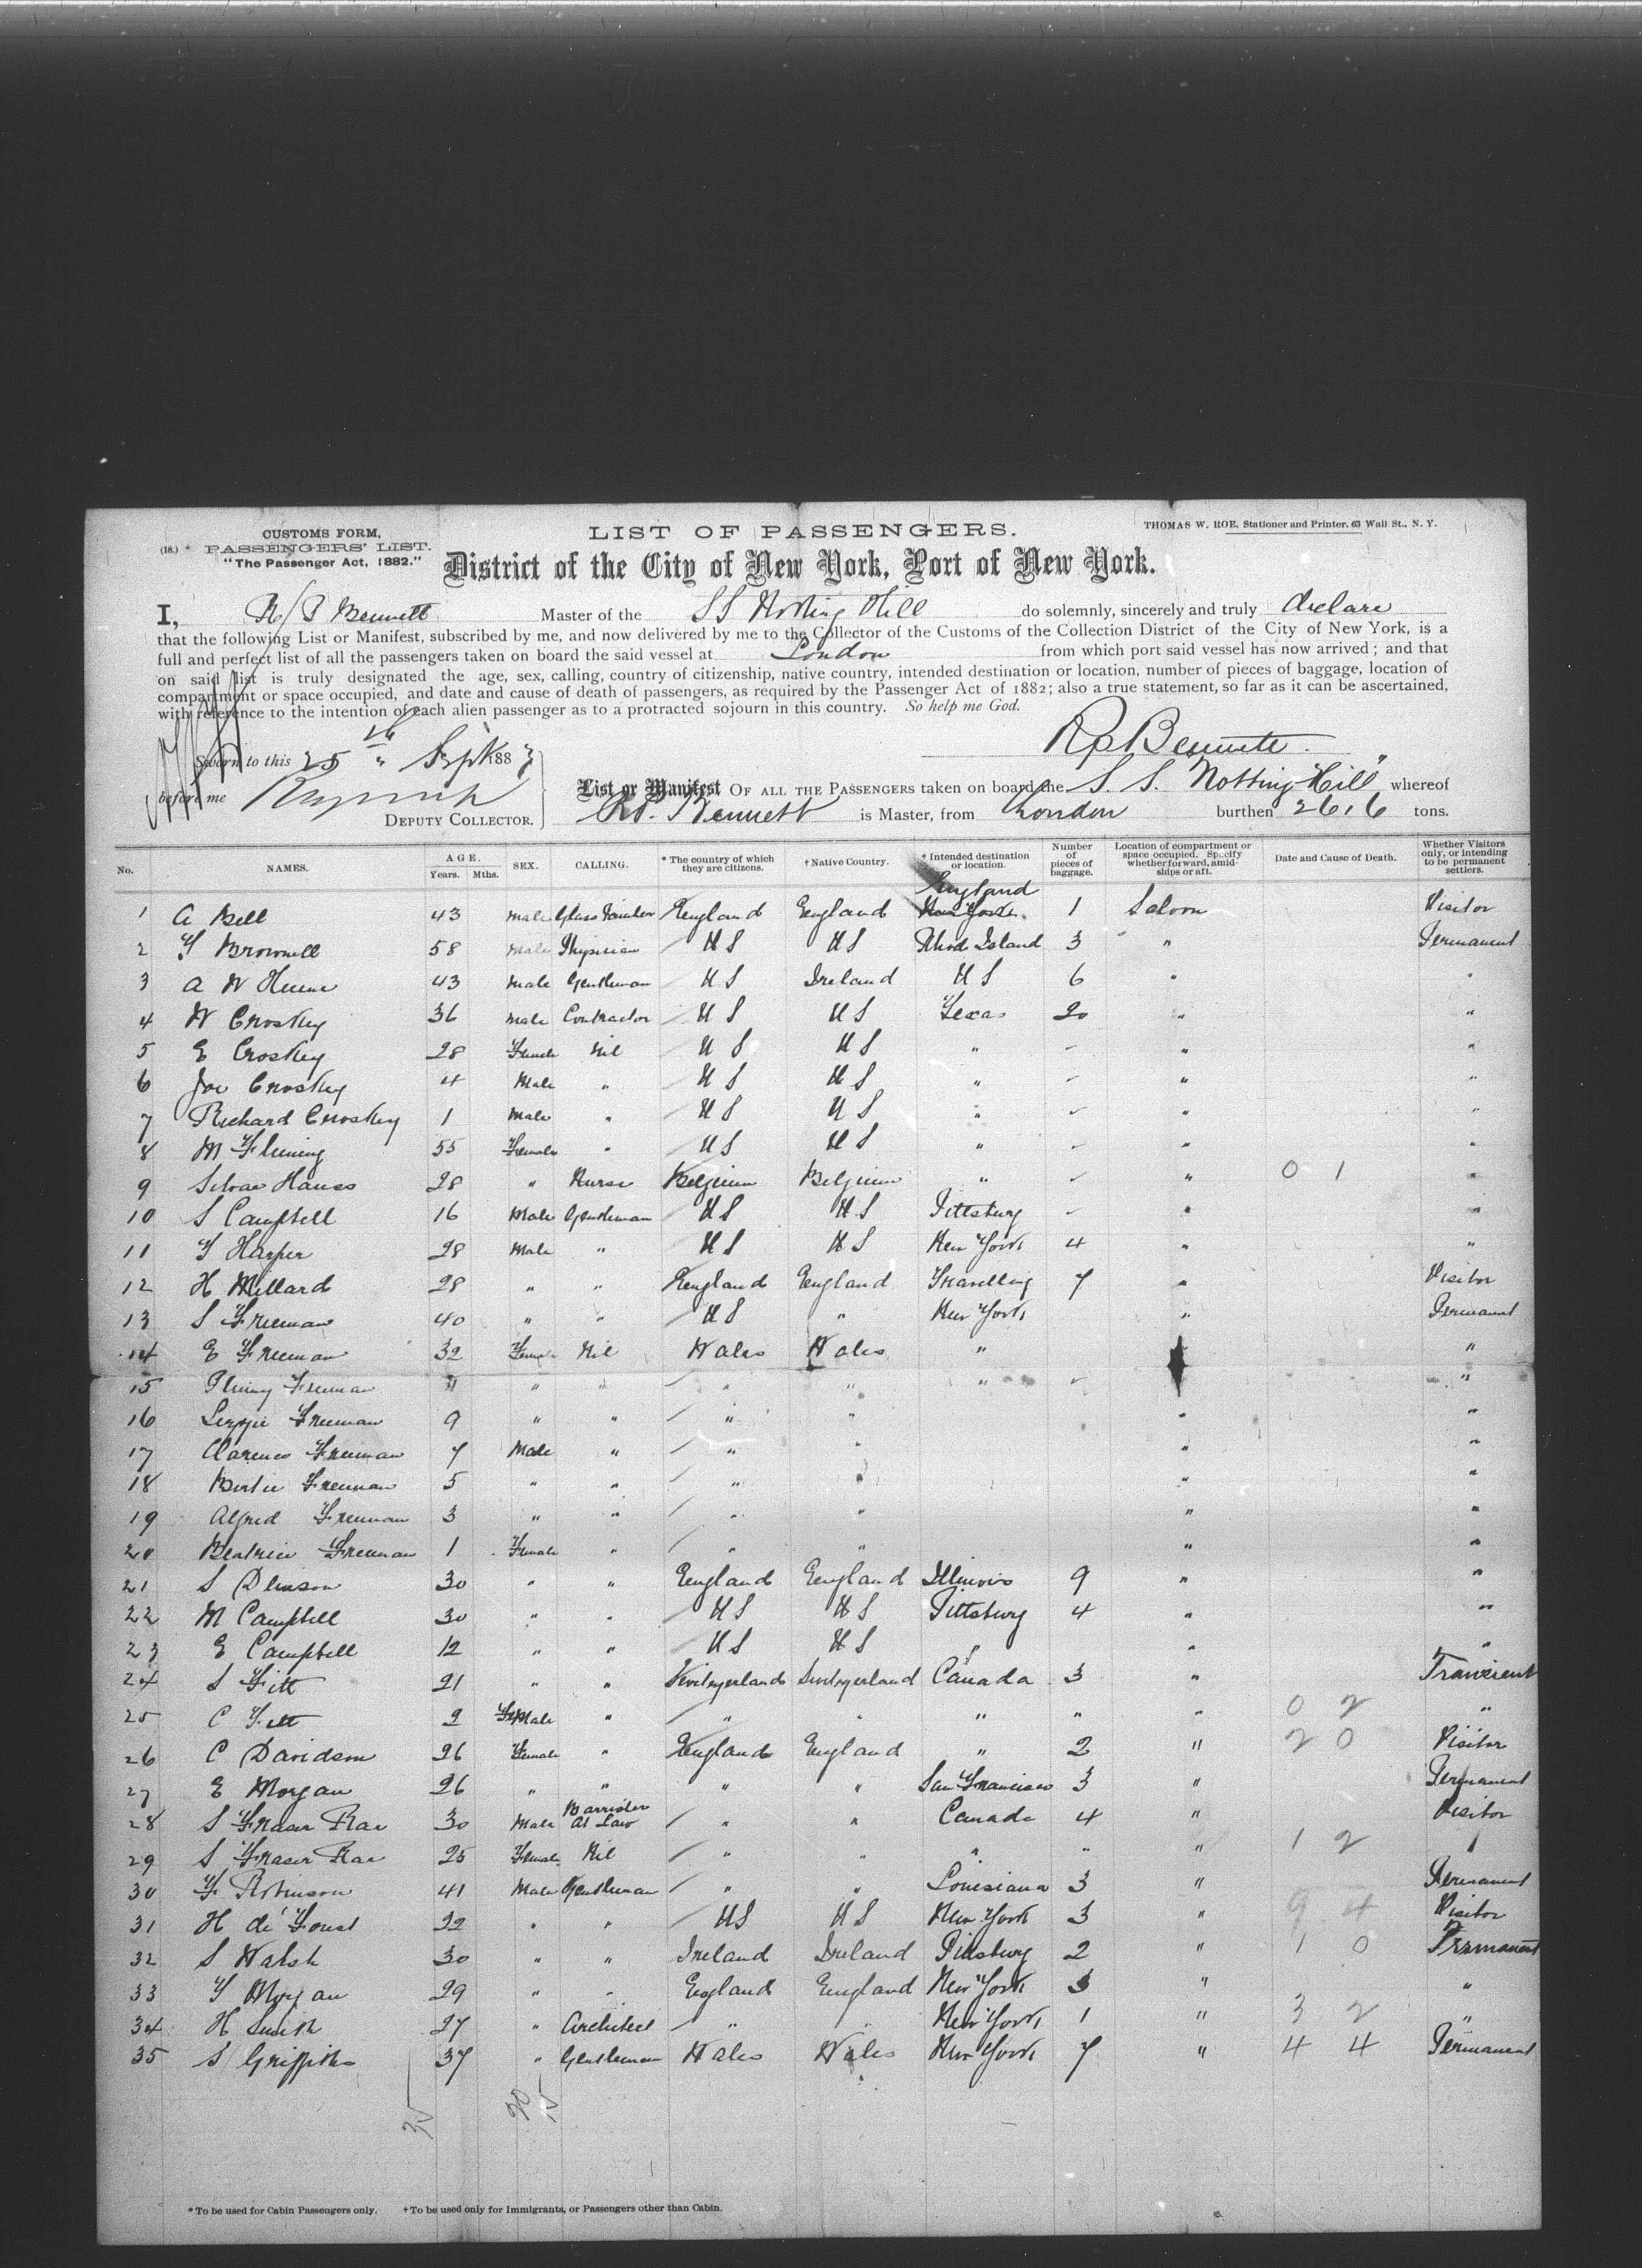 CUSTOMS FORM,
(18.) PASSENGERS' LIST.
"The Passenger Act, 1882."
LIST OF PASSENGERS.
THOMAS W. ROE, Stationer and Printer, 63 Wall St., N. Y.
District of the City of New York, Port of New York.
I, R P Bennett Master of the SS Notting Hill do solemnly, sincerely and truly declare
that the following List or Manifest, subscribed by me, and now delivered by me to the Collector of the Customs of the Collection District of the City of New York, is a
full and perfect list of all the passengers taken on board the said vessel at London from which port said vessel has now arrived; and that
on said list is truly designated the age, sex, calling, country of citizenship, native country, intended destination or location, number of pieces of baggage, location of
compartment or space occupied, and date and cause of death of passengers, as required by the Passenger Act of 1882; also a true statement, so far as it can be ascertained,
with reference to the intention of each alien passenger as to a protracted sojourn in this country. So help me God.
RP Bennett
Sworn to this 25th Sept 1883
before me
DEPUTY COLLECTOR.
List or Manifest OF ALL THE PASSENGERS taken on board the S. S. "Notting Hill" whereof
RP. Bennett is Master, from London burthen 2616 tons.
No. NAMES. AGE. Years. Mths. SEX. CALLING. * The country of which they are citizens. † Native Country. † Intended destination or location. Number of pieces of baggage. Location of compartment or space occupied. Specify whether forward, amidships or aft. Date and Cause of Death. Whether Visitors only, or intending to be permanent settlers.
England
1 A Bell 43 Male Glass England England New York 1 Saloon Visitor
2 T Brownell 58 Male Physician U S U S Rhod Island 3 " Permanent
3 A W Hume 43 Male Gentleman U S Ireland U S 6 " "
4 W Croskey 36 Male Contractor U S U S Texas 20 " "
5 E Croskey 28 Female Nil U S U S " " "
6 Joe Croskey 4 Male " U S U S " " "
7 Richard Croskey 1 Male " U S U S " " "
8 M Fleming 55 Female " U S U S " " "
9 Hauss 28 " Nurse Belgium Belgium " " 0 1 "
10 S Campbell 16 Male Gentleman U S U S Pittsburg " "
11 T Harper 28 Male " U S U S New York 4 " "
12 H Millard 28 " " England England Travelling 7 " Visitor
13 S Freeman 40 " " U S " New York " Permanent
14 E Freeman 32 Female Nil Wales Wales " "
15 Freeman 11 " " " " " "
16 Lizzie Freeman 9 " " " " " "
17 Clarence Freeman 7 Male " " " " "
18 Bertie Freeman 5 " " " " " "
19 Alfred Freeman 3 " " " " " "
20 Beatrice Freeman 1 Female " " " " "
21 S 30 " " England England Illinois 9 " "
22 M Campbell 30 " " U S U S Pittsburg 4 " "
23 E Campbell 12 " " U S U S " " "
24 S Fitt 21 " " Switzerland Switzerland Canada 3 " Transient
25 C Fitt 2 FeMale " " " " " " 0 2 "
26 C Davidson 26 Female " England England " 2 " 2 0 Visitor
27 E Morgan 26 " " " " San Francisco 3 " Permanent
28 S Fraser Rae 30 Male Barrister At Law " " Canada 4 " Visitor
29 S Fraser Rae 25 Female Nil " " " " " 1 2 "
30 F Robinson 41 Male Gentleman " " Louisiana 3 " Permanent
31 H de Forest 22 " " US U S New York 3 " 9 4 Visitor
32 S Walsh 30 " " Ireland Ireland Pittsburg 2 " 1 0 Permanent
33 T Morgan 29 " " England England New York 3 " "
34 H Smith 27 " Architect " " New York 1 " 3 2 "
35 S Griffiths 37 " Gentleman Wales Wales New York 7 " 4 4 Permanent
35 20 15
* To be used for Cabin Passengers only. † To be used only for Immigrants, or Passengers other than Cabin.